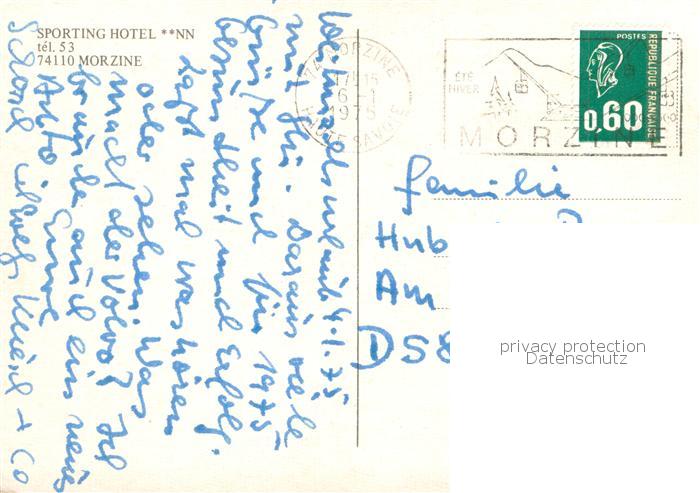 SPORTING HOTEL **NN
tél. 53
74110 MORZINE
4.1.75
Daraus viele
Grüße und für 1975
Gesundheit und Erfolg.
Laßt mal was hören
oder sehen. Was
macht der Volvo? Ich
brauche auch ein neues
Auto.
+ Co
74 MORZINE
17H15
6-1
1975
HAUTE SAVOIE
ÉTÉ
HIVER
MORZINE
POSTES
REPUBLIQUE FRANÇAISE
0,60
Familie
Hub
Am
D58
privacy protection
Datenschutz